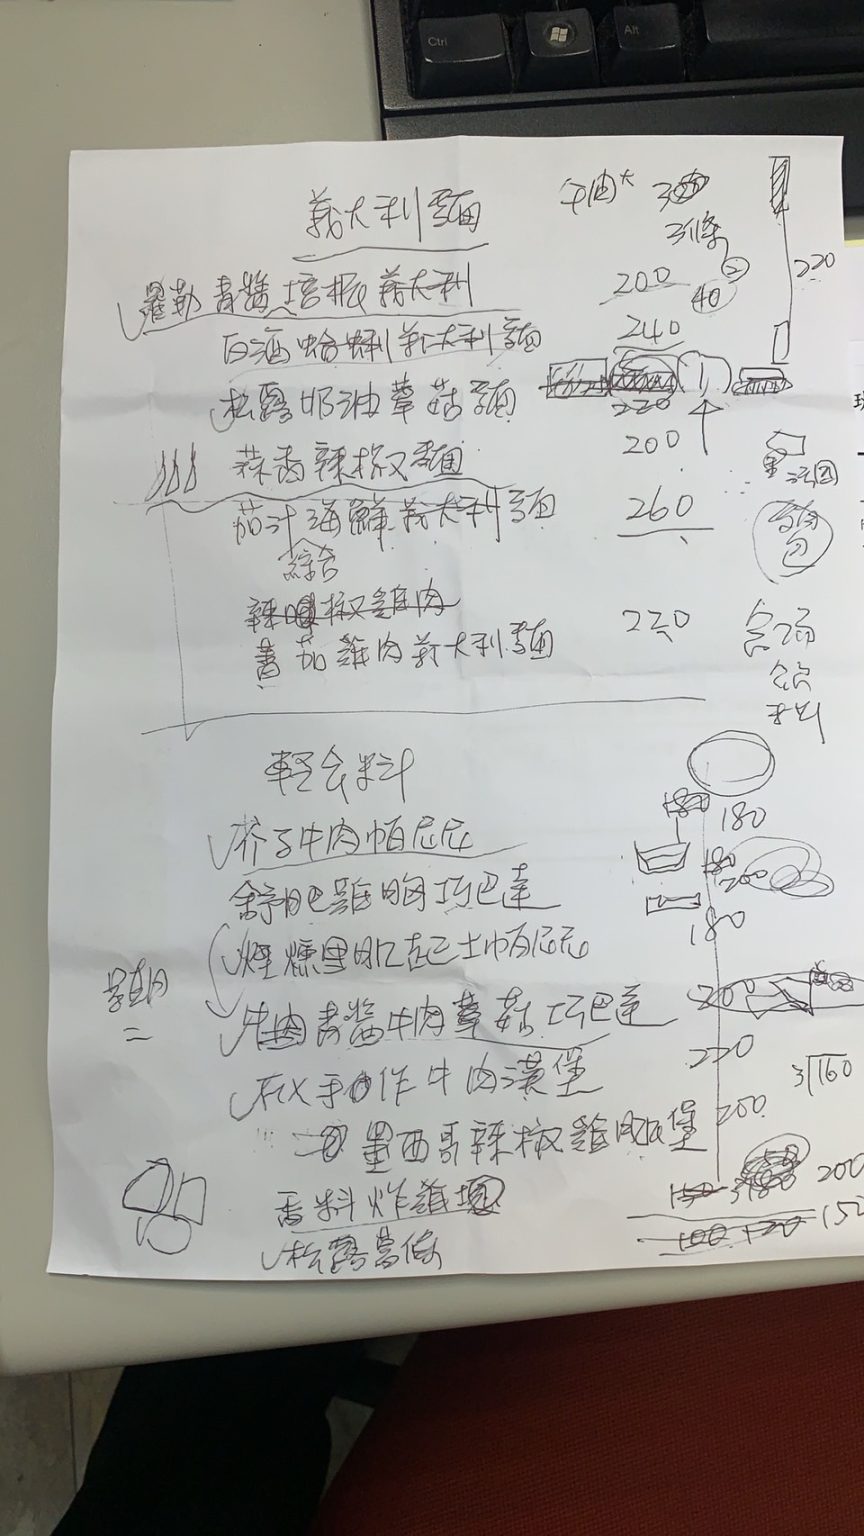 Ctrl
Alt
義大利麵
牛油
3條
羅勒青醬培根義大利
200
40
220
白酒蛤蜊義大利麵
240
松露奶油蕈菇麵
220
蒜香辣椒麵
200
茄汁海鮮義大利麵
260
綜合
辣椒雞肉
蕃茄雞肉義大利麵
220
輕食料
180
芥子牛肉帕尼尼
舒肥雞胸巧巴達
200
煙燻里肌起士帕尼尼
180
星期
二
牛肉青醬牛肉蕈菇巧巴達
200
手作牛肉漢堡
220
3 160
墨西哥辣椒雞腿堡
200
香料炸雞
150 200
松露薯條
100 120 150